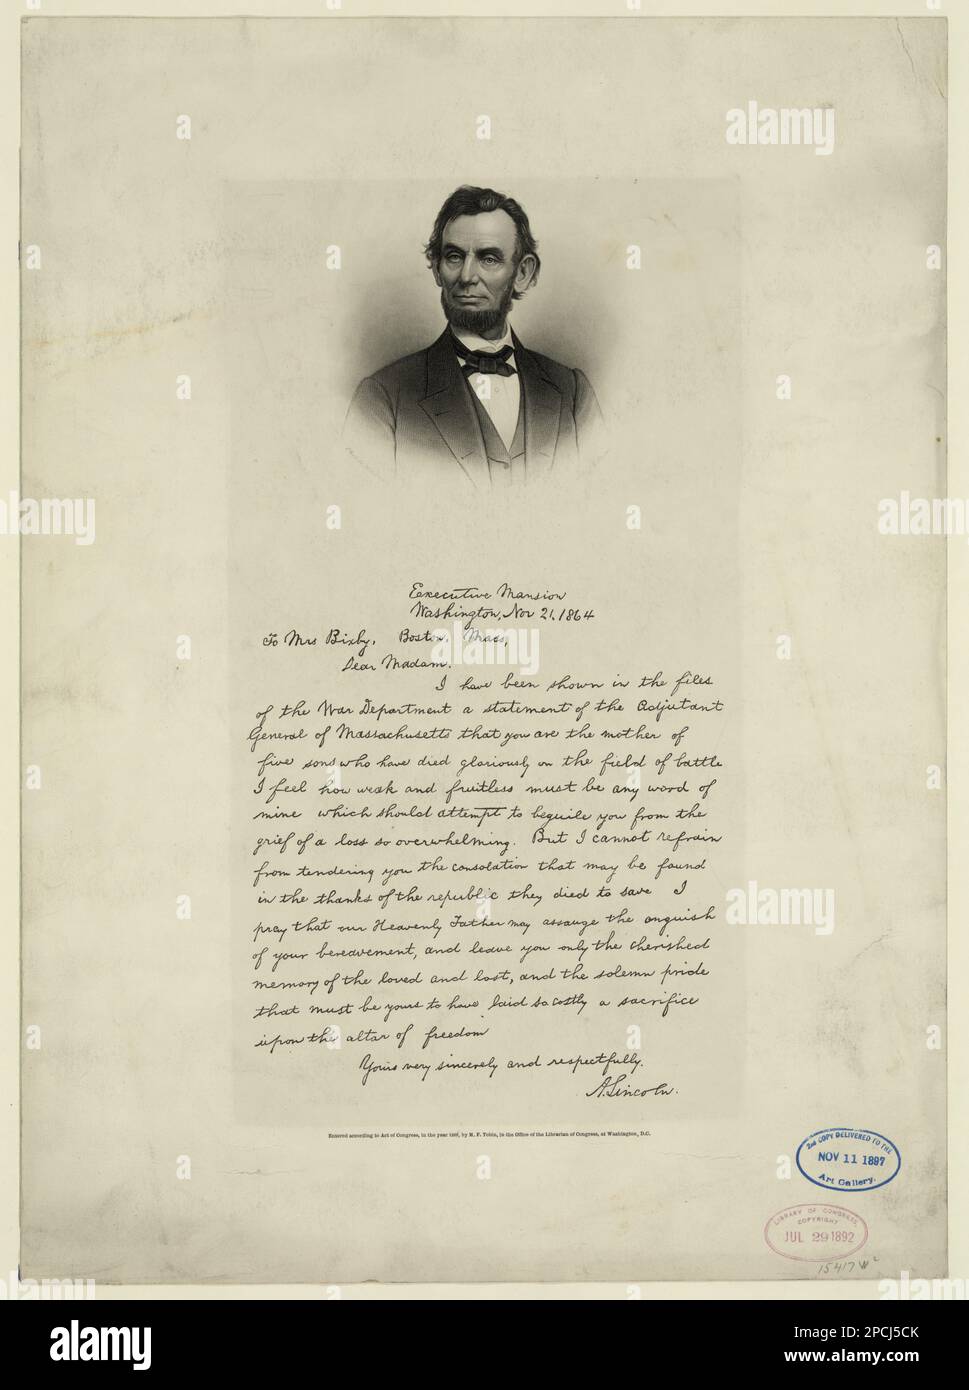 Executive Mansion
Washington, Nov 21, 1864
To Mrs Bixby, Boston, Mass,
Dear Madam.
I have been shown in the files
of the War Department a statement of the Adjutant
General of Massachusetts that you are the mother of
five sons who have died gloriously on the field of battle
I feel how weak and fruitless must be any word of
mine which should attempt to beguile you from the
grief of a loss so overwhelming. But I cannot refrain
from tendering you the consolation that may be found
in the thanks of the republic they died to save I
pray that our Heavenly Father may assauge the anguish
of your bereavement, and leave you only the cherished
memory of the loved and lost, and the solemn pride
that must be yours to have laid so costly a sacrifice
upon the altar of freedom
Yours very sincerely and respectfully.
A. Lincoln.
Entered according to Act of Congress, in the year by M. F. Tobin, in the Office of the Librarian of Congress, at Washington, D.C.
2nd COPY DELIVERED TO THE
NOV 11 1897
Art Gallery.
LIBRARY OF CONGRESS,
COPYRIGHT
JUL 29 1892
15417
alamy
Image ID: 2PCJ5CK
www.alamy.com